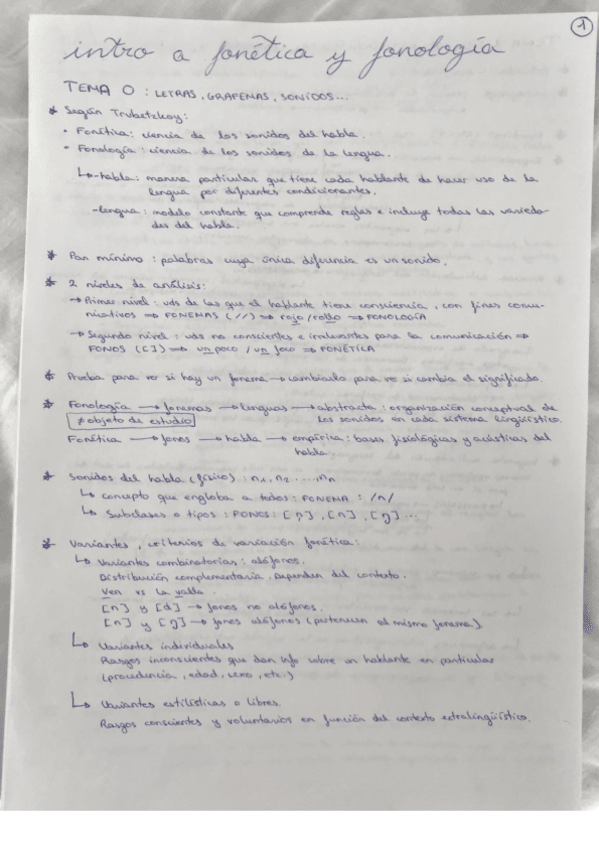 1
intro a fonética y fonología
TEMA 0 : LETRAS, GRAFEMAS, SONIDOS...
* Según Trubetzkoy:
• Fonética: ciencia de los sonidos del habla.
• Fonología: ciencia de los sonidos de la lengua.
↳ -habla: manera particular que tiene cada hablante de hacer uso de la
lengua por diferentes condicionantes.
-lengua: modelo constante que comprende reglas e incluye todas las varieda-
des del habla.
* Par mínimo: palabras cuya única diferencia es un sonido.
* 2 niveles de análisis:
→ Primer nivel: uds de las que el hablante tiene consciencia, con fines comu-
nicativos ⇒ FONEMAS (//) ⇒ rojo/rollo ⇒ FONOLOGÍA
→ Segundo nivel: uds no conscientes e irrelevantes para la comunicación ⇒
FONOS ([]) ⇒ un poco / un foco ⇒ FONÉTICA
* Prueba para ver si hay un fonema → cambiarlo para ver si cambia el significado.
* Fonología → fonemas → lenguas → abstracta: organización conceptual de
≠ objeto de estudio los sonidos en cada sistema lingüístico.
Fonética → fonos → habla → empírica: bases fisiológicas y acústicas del
habla.
* Sonidos del habla (físico): n₁, n₂, ..., nₙ
↳ Concepto que engloba a todos: FONEMA: /n/
↳ Subclases o tipos: FONOS: [n̪], [n], [ŋ]...
* Variantes, criterios de variación fonética:
↳ Variantes combinatorias: alófonos.
Distribución complementaria. Dependen del contexto.
Ven vs la valla.
[n] y [d] → fonos no alófonos.
[n] y [ŋ] → fonos alófonos (pertenecen al mismo fonema)
↳ Variantes individuales
Rasgos inconscientes que dan info sobre un hablante en particular
(procedencia, edad, sexo, etc.)
↳ Variantes estilísticas o libres.
Rasgos conscientes y voluntarios en función del contexto extralingüístico.